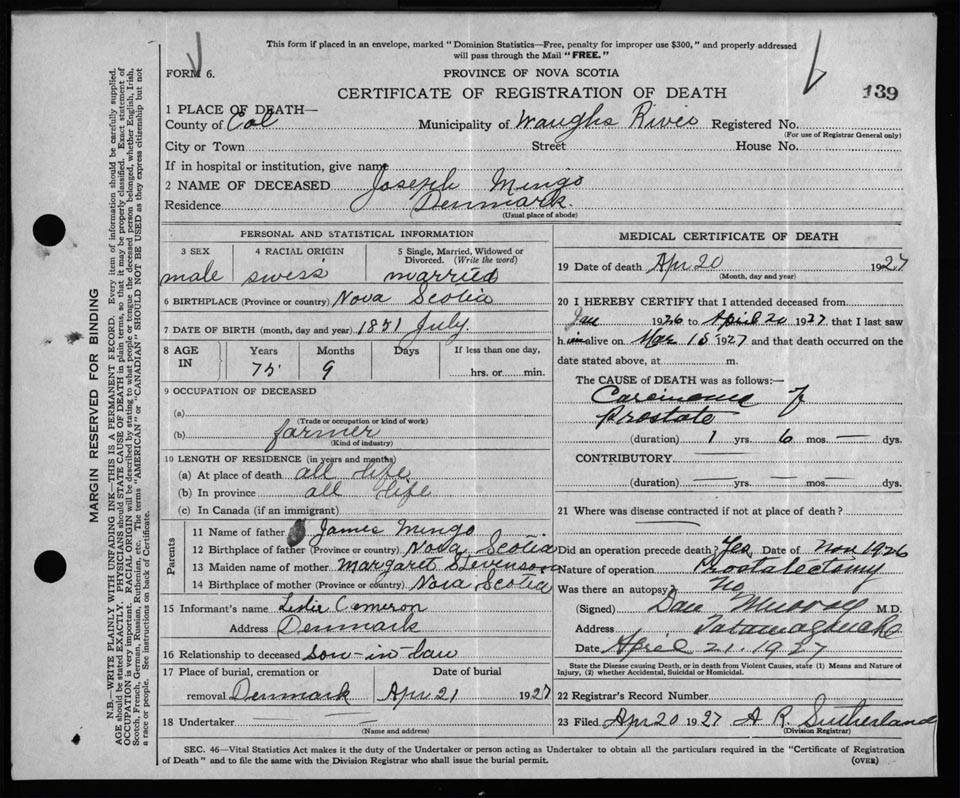 This form if placed in an envelope, marked "Dominion Statistics—Free, penalty for improper use $300," and properly addressed
will pass through the Mail "FREE."
FORM 6.
PROVINCE OF NOVA SCOTIA
CERTIFICATE OF REGISTRATION OF DEATH
139
1 PLACE OF DEATH—
County of Col Municipality of Waughs River Registered No.
(For use of Registrar General only)
City or Town Street House No.
If in hospital or institution, give name
2 NAME OF DECEASED Joseph Mingo
Residence Denmark
(Usual place of abode)
PERSONAL AND STATISTICAL INFORMATION
3 SEX 4 RACIAL ORIGIN 5 Single, Married, Widowed or
Divorced. (Write the word)
male swess married
6 BIRTHPLACE (Province or country) Nova Scotia
7 DATE OF BIRTH (month, day and year) 1851 July.
8 AGE IN Years Months Days If less than one day,
75 9 hrs. or min.
9 OCCUPATION OF DECEASED
(a)
(Trade or occupation or kind of work)
(b) farmer
(Kind of industry)
10 LENGTH OF RESIDENCE (in years and months)
(a) At place of death all life
(b) In province all life
(c) In Canada (if an immigrant)
Parents
11 Name of father James Mingo
12 Birthplace of father (Province or country) Nova Scotia
13 Maiden name of mother Margaret Stevenson
14 Birthplace of mother (Province or country) Nova Scotia
15 Informant's name Leslie Cameron
Address Denmark
16 Relationship to deceased son-in-law
17 Place of burial, cremation or Date of burial
removal Denmark Apr 21 1927
18 Undertaker
(Name and address)
MEDICAL CERTIFICATE OF DEATH
19 Date of death Apr 20 1927
(Month, day and year)
20 I HEREBY CERTIFY that I attended deceased from
Jan 1926 to April 20 1927 that I last saw
him alive on Mar 15 1927 and that death occurred on the
date stated above, at m.
The CAUSE OF DEATH was as follows:—
Carcinoma of
Prostate
(duration) 1 yrs. 6 mos. — dys.
CONTRIBUTORY
(duration) yrs. mos. dys.
21 Where was disease contracted if not at place of death?
Did an operation precede death? Yes Date of Nov 1926
Nature of operation Prostatectomy
Was there an autopsy? No
(Signed) Dan Murray M.D.
Address Tatamagouche
Date April 21. 1927
State the Disease causing Death, or in death from Violent Causes, state (1) Means and Nature of
Injury, (2) whether Accidental, Suicidal or Homicidal.
22 Registrar's Record Number
23 Filed Apr 20 1927 A R. Sutherland
(Division Registrar)
SEC. 46—Vital Statistics Act makes it the duty of the Undertaker or person acting as Undertaker to obtain all the particulars required in the "Certificate of Registration
of Death" and to file the same with the Division Registrar who shall issue the burial permit.
(OVER)
MARGIN RESERVED FOR BINDING
N.B.—WRITE PLAINLY WITH UNFADING INK—THIS IS A PERMANENT RECORD. Every item of information should be carefully supplied.
AGE should be stated EXACTLY. PHYSICIANS should STATE CAUSE OF DEATH in plain terms, so that it may be properly classified. Exact statement of
OCCUPATION is very important. RACIAL ORIGIN will be described by stating to what people or tongue the deceased person belonged, whether English, Irish,
Scotch, French, German, Russian, Ruthenian, etc. The terms "AMERICAN" or "CANADIAN" SHOULD NOT BE USED as they express citizenship but not
a race or people. See instructions on back of Certificate.